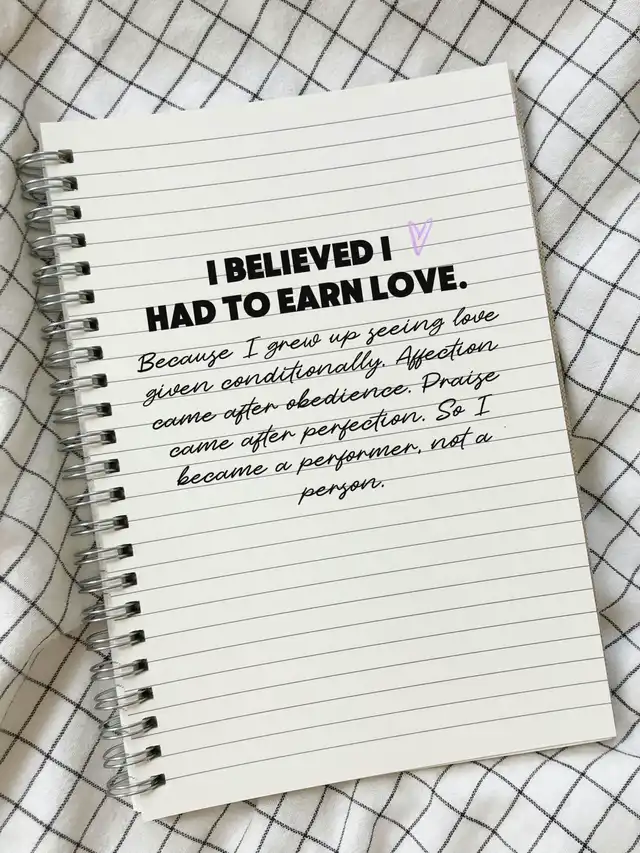 I BELIEVED I
HAD TO EARN LOVE.
Because I grew up seeing love
given conditionally. Affection
came after obedience. Praise
came after perfection. So I
became a performer, not a
person.